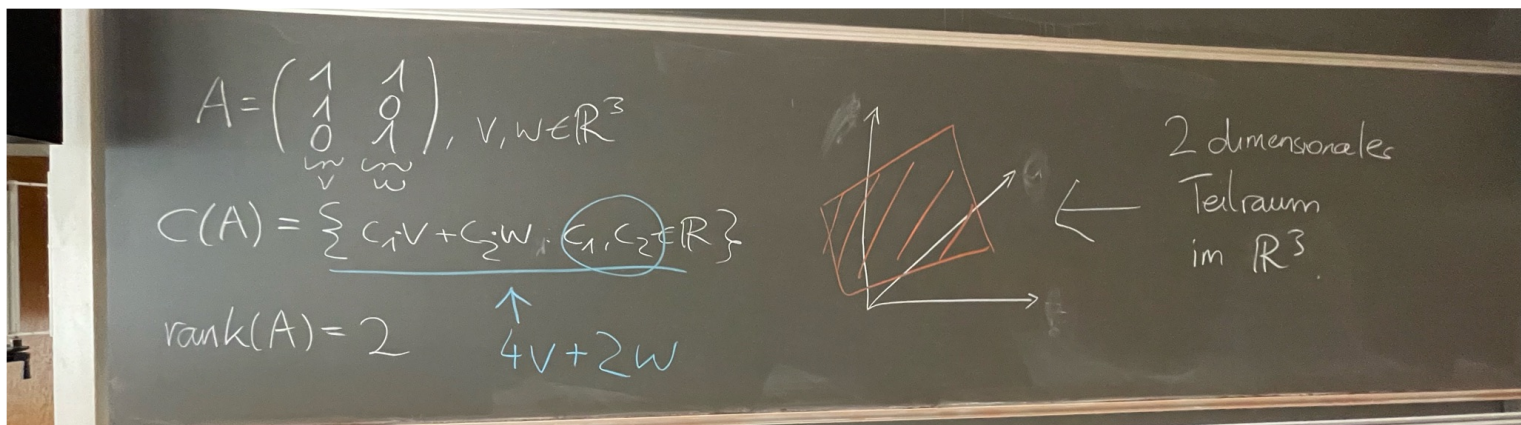 A = ( 1 1
1 0
0 1 ), v, w ∈ ℝ³
v w
C(A) = { c₁·v + c₂·w : c₁, c₂ ∈ ℝ }
rank(A) = 2
4v + 2w
2 dimensionales
Teilraum
im ℝ³.